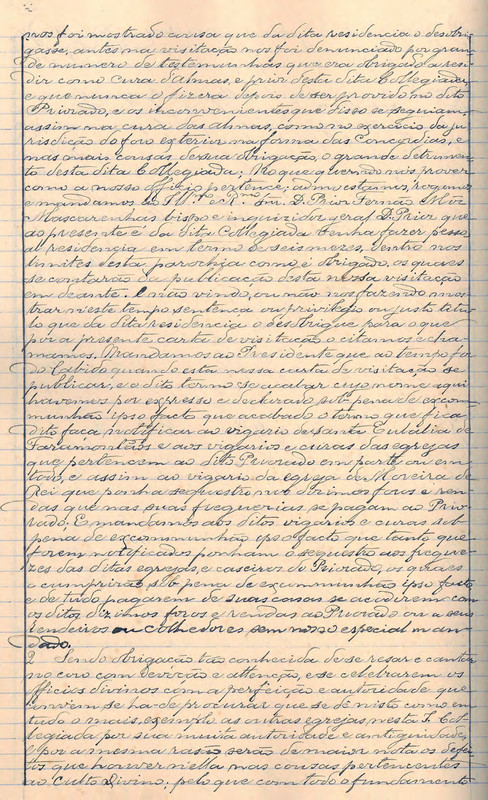 nos foi mostrado causa que da dita residencia o desobri
gasse, antes na visitação nos foi denunciado por gran
de numero de testemunhas que era obrigado a resi
dir como cura d'almas, e prior desta dita Collegiada,
e que nunca o fizera depois de ser provido no dito
Priorado, e os inconvenientes que disso se seguiam
assim na cura das almas, como no exercicio da ju
risdicção do foro exterior na forma das Concordias, e
nas mais cousas de sua obrigação, e grande detrimen
to desta dita Collegiada; No que querendo nós prover
como a nosso officio pertence; admoestamos, rogamos
e mandamos ao Ill.mo e R.mo Snr. D. Prior Fernão Miz
Mascarenhas bispo e inquizidor geral D. Prior que
ao presente é da dita Collegiada venha fazer pesso
al residencia em termo de seis mezes, dentro nos
limites desta parochia como é obrigado, os quaes
se contarão da publicação desta nossa visitação
em deante. E não vindo, ou não nos fazendo mos
trar neste tempo sentença ou privilegio ou justo titu
lo que da dita residencia o desobrigue, para o que
por a presente carta de visitação o citamos e cha
mamos. Mandamos ao Presidente que ao tempo for
do Cabido quando esta nossa carta de visitação se
publicar, e o dito termo se acabar cujo nome aqui
havemos por expresso e declarado sob pena de excom
munhão ipso facto que acabado o termo que fica
dito faça notificar ao vigario de santa Eulalia de
e aos vigarios e curas das egrejas
que pertencem ao dito Priorado em parte ou em
todo, e assim ao vigario da egreja de Moreira de
Rei que ponha sequestro nos dizimos foros e ren
das que nas suas freguezias se pagam ao Prio
rado; E mandamos aos ditos vigarios e curas sob
pena de excommunhão ipso facto que tanto que
forem notificados ponham o sequestro aos fregue
zes das ditas egrejas, e caseiros do Priorado, os quaes
o cumprirão sob pena de excommunhão ipso facto
e de tudo pagarem de suas casas se acudirem com
os ditos dizimos foros e rendas ao Priorado ou a seus
rendeiros ou colhedores sem nosso especial man
dado.
2 Sendo obrigação tão conhecida de se resar e cantar
no coro com devoção e attenção, e se celebrarem os
officios divinos com a perfeição e autoridade que
convem se ha-de procurar que se dê nisto como em
tudo o mais, exemplo as outras egrejas, nesta I. Col
legiada por sua muita autoridade e antiguidade,
e por a mesma rasão serão de maior nota os defei
tos que houver nella nas cousas pertencentes
ao Culto Divino; pelo que com todo o fundamento